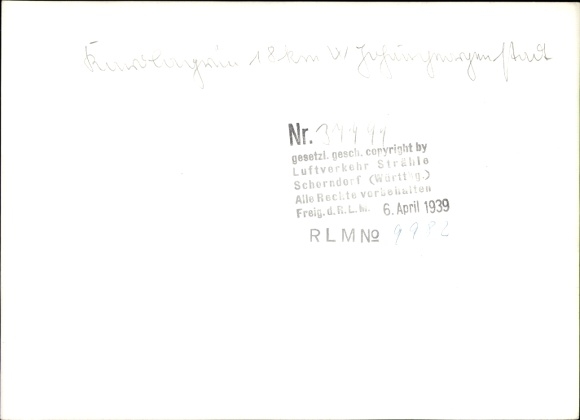 18 km v/ Johanngeorgenstadt
Nr. 37999
gesetzl. gesch. copyright by
Luftverkehr Strähle
Schorndorf (Württbg.)
Alle Rechte vorbehalten
Freig. d. R.L.M. 6. April 1939
RLM No 9982